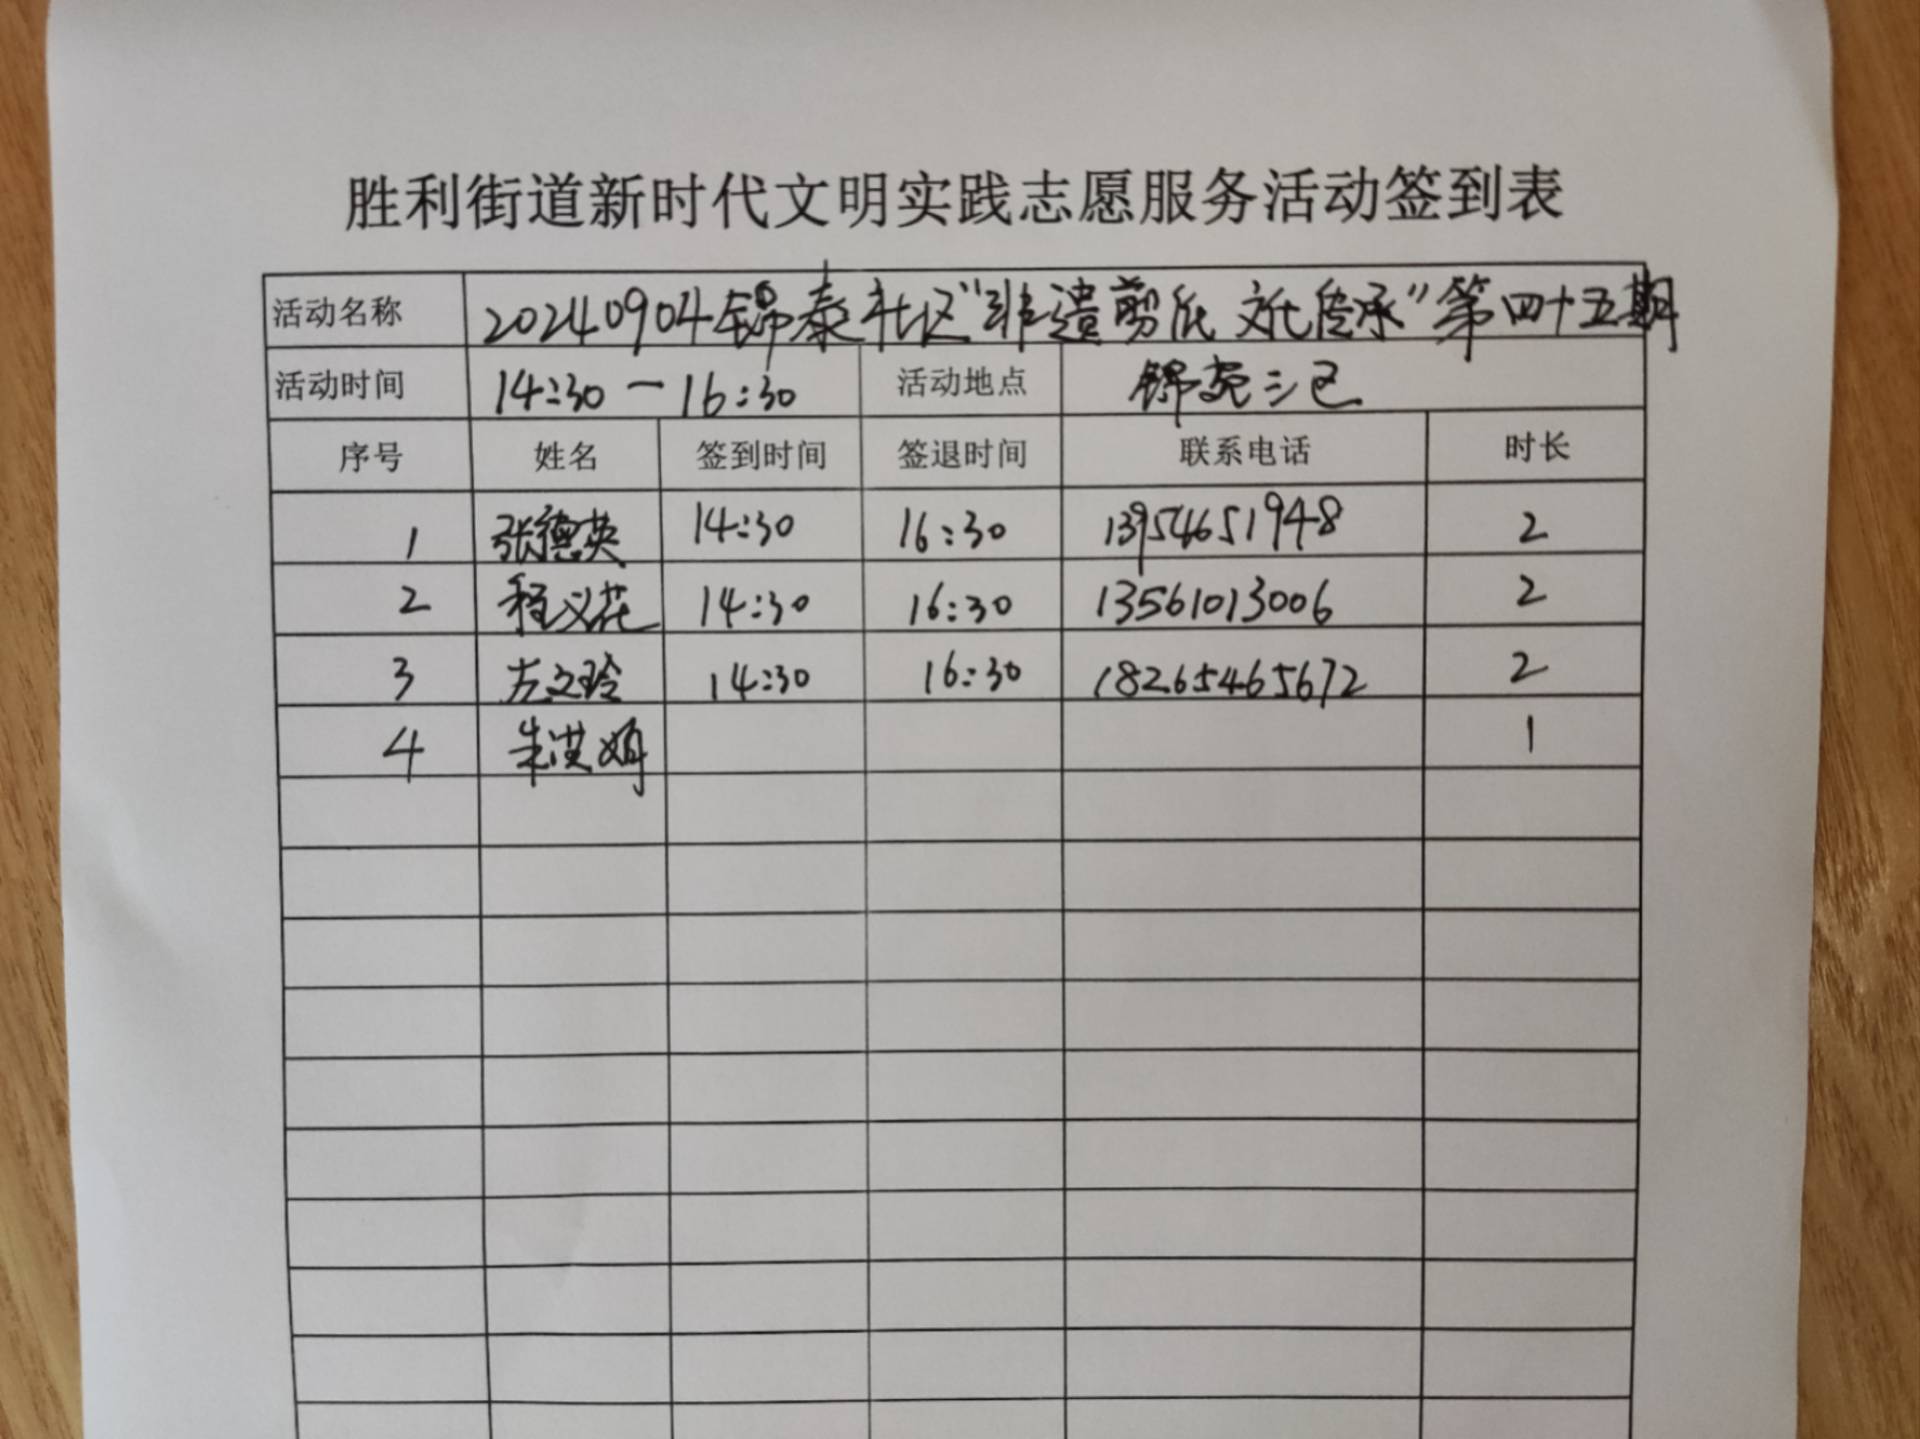 胜利街道新时代文明实践志愿服务活动签到表
活动名称 20240904锦泰社区“非遗剪纸 文化传承”第四十五期
活动时间 14:30一16:30 活动地点 锦苑三区
序号 姓名 签到时间 签退时间 联系电话 时长
1 张德英 14:30 16:30 13954651948 2
2 程义花 14:30 16:30 13561013006 2
3 14:30 16:30 18265465672 2
4 朱洪娟 1